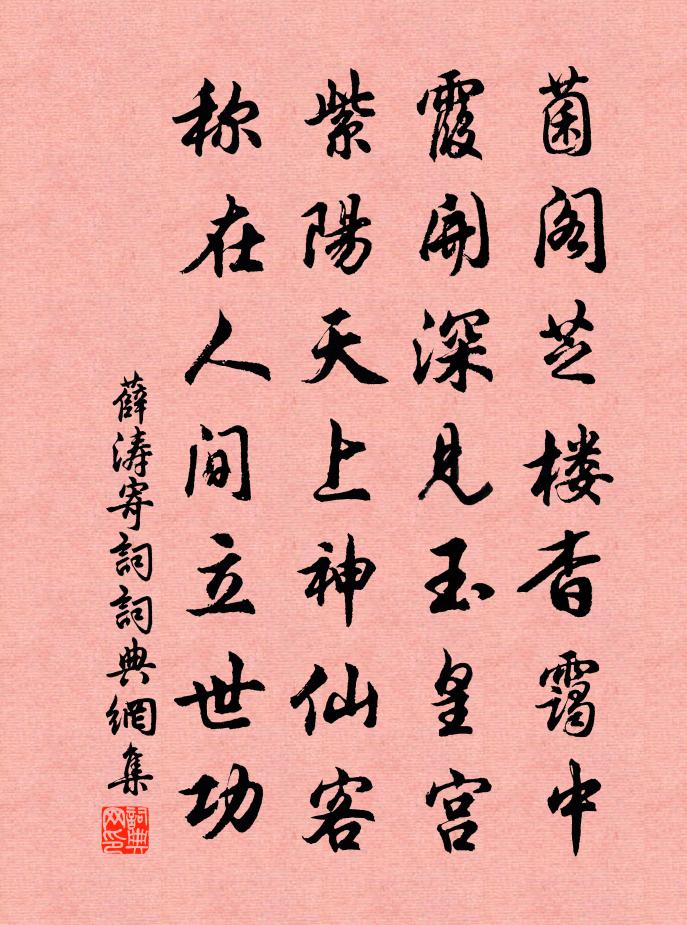 菌阁芝楼杳霭中
霞開深见玉皇宫
紫陽天上神仙客
称在人间立世功
薛涛寄詞詞典網集
詞典网印